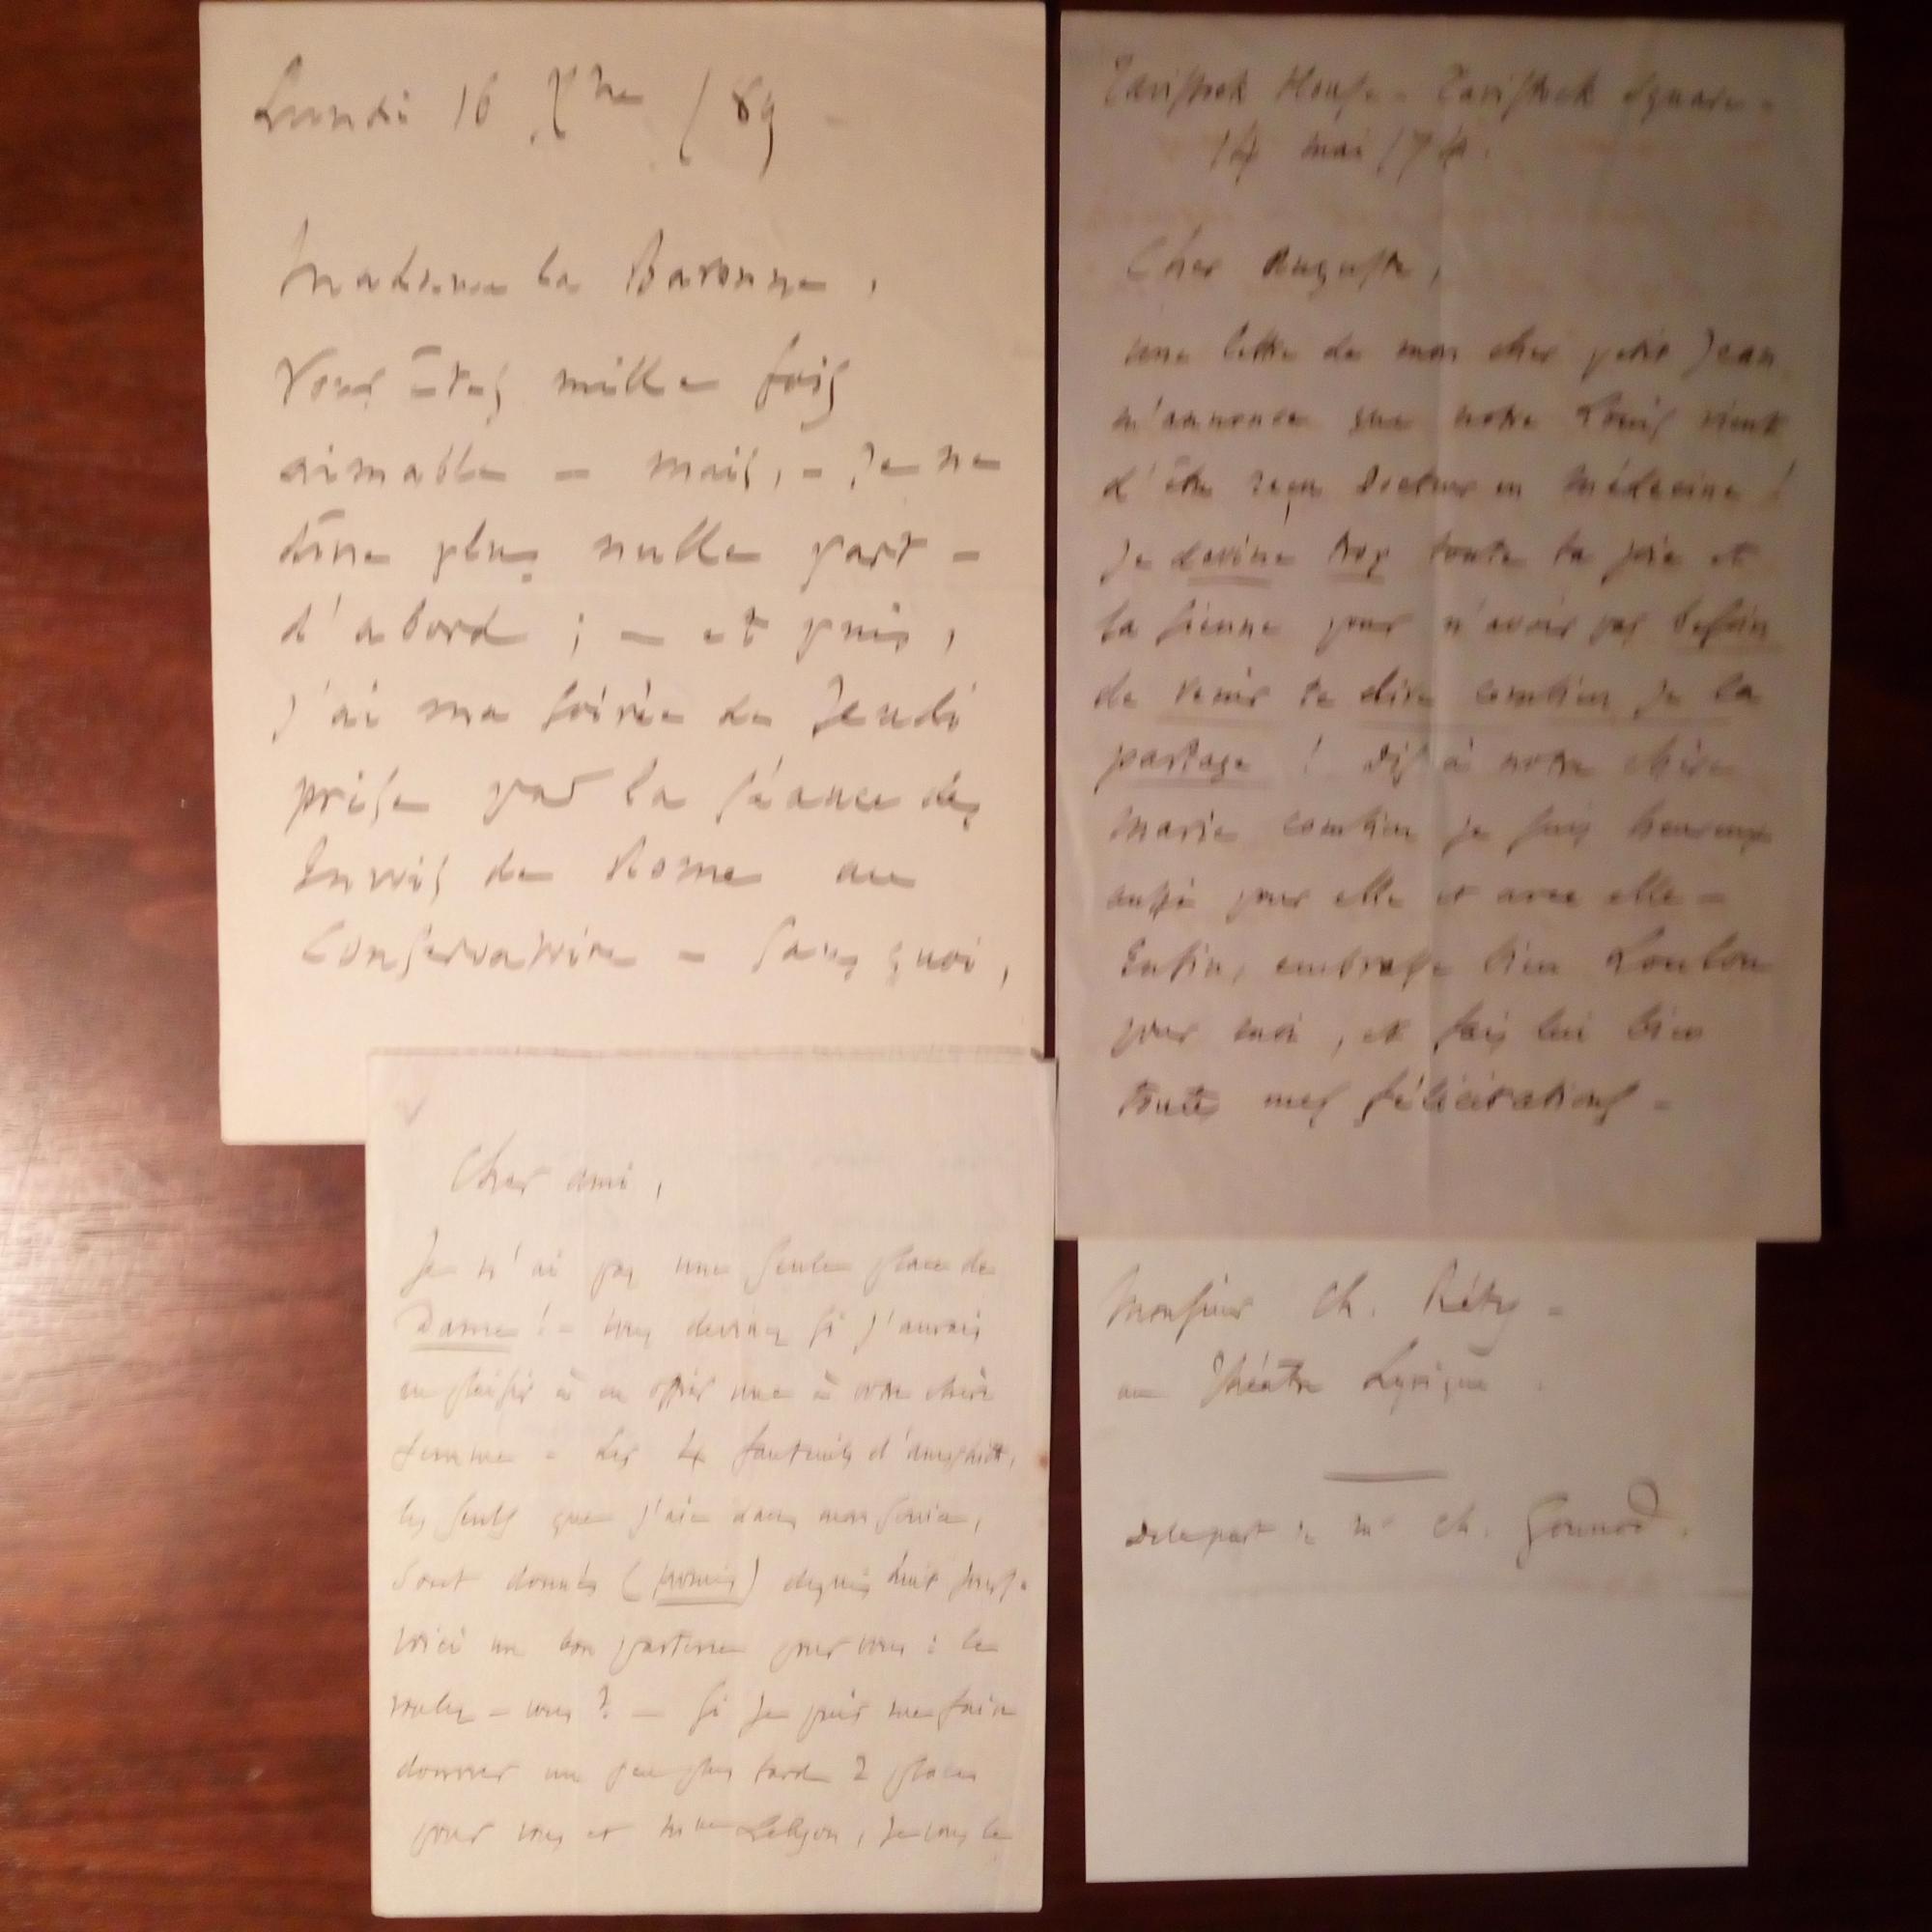 Lundi 16 Xbre /89
Madame la Baronne,
Vous êtes mille fois
aimable – mais, – je ne
dîne plus nulle part –
d'abord ; – et puis,
j'ai ma soirée de Jeudi
prise par la séance des
Envois de Rome au
Conservatoire – Sans quoi,
Tavistock House – Tavistock Square –
14 mai /74.
Cher Auguste,
une lettre de mon cher petit Jean
m'annonce que notre Louis vient
d'être reçu Docteur en Médecine !
Je devine trop toute ta joie et
la sienne pour n'avoir pas besoin
de venir te dire combien je la
partage ! Dis à notre chère
Marie combien je suis heureux
aussi pour elle et avec elle –
Enfin, embrasse bien Loulou
pour moi, et fais lui bien
toutes mes félicitations –
Cher ami,
Je n'ai pas une seule place de
Dame ! – vous devinez si j'aurais
eu plaisir à en offrir une à votre chère
femme – Les 4 fauteuils d'amphith.,
les seuls que j'aie dans mon service,
sont donnés (promis) depuis huit jours.
Voici un bon parterre pour vous : le
voulez-vous ? – Si je puis me faire
donner un peu plus tard 2 places
pour vous et Mme, je vous le
Monsieur Ch. Réty –
au Théâtre Lyrique.
De la part de Mr Ch. Gounod.